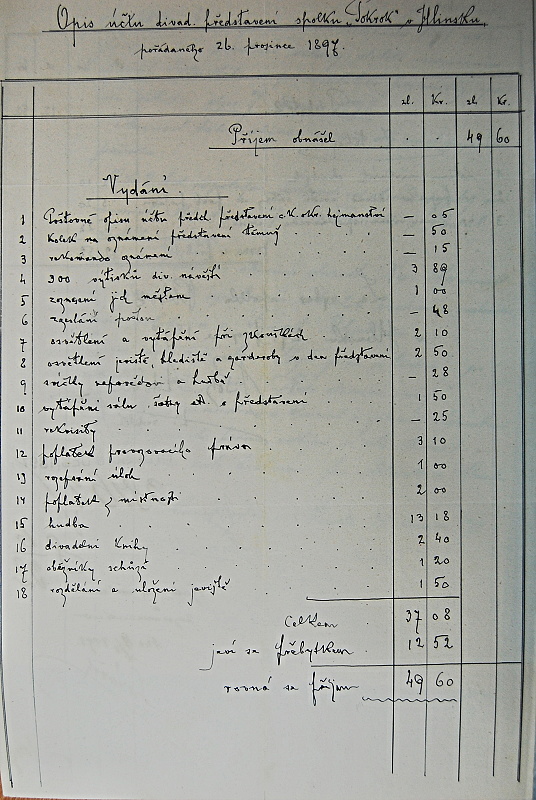 Opis účtu divad. představení spolku „Pokrok“ v Hlinsku,
pořádaného 26. prosince 1897.
zl. Kr. zl. Kr.
Příjem obnášel . . 49 60
Vydání.
1 Poštovné opisu účtu předch. představení c.K. okr. hejmanství — 05
2 Kolek na oznámení představení — 50
3 rekomando oznámení — 15
4 300 výtisků div. návěští 3 89
5 roznešení jich městem 1 00
6 zaslání poštou — 48
7 osvětlení a vytápění při zkouškách 2 10
8 osvětlení jeviště, hlediště a garderoby v den představení 2 50
9 svíčky a hudba — 28
10 vytápění sálu, šatny atd. o představení 1 50
11 rekvisity — 25
12 poplatek provozovacího práva 3 10
13 rozepsání úloh 1 00
14 poplatek z místností 2 00
15 hudba 13 18
16 divadelní knihy 2 40
17 oběžníky schůzí 1 20
18 rozdělání a uložení jeviště 1 50
Celkem 37 08
javí sa přebytkem 12 52
rovná sa příjmu 49 60